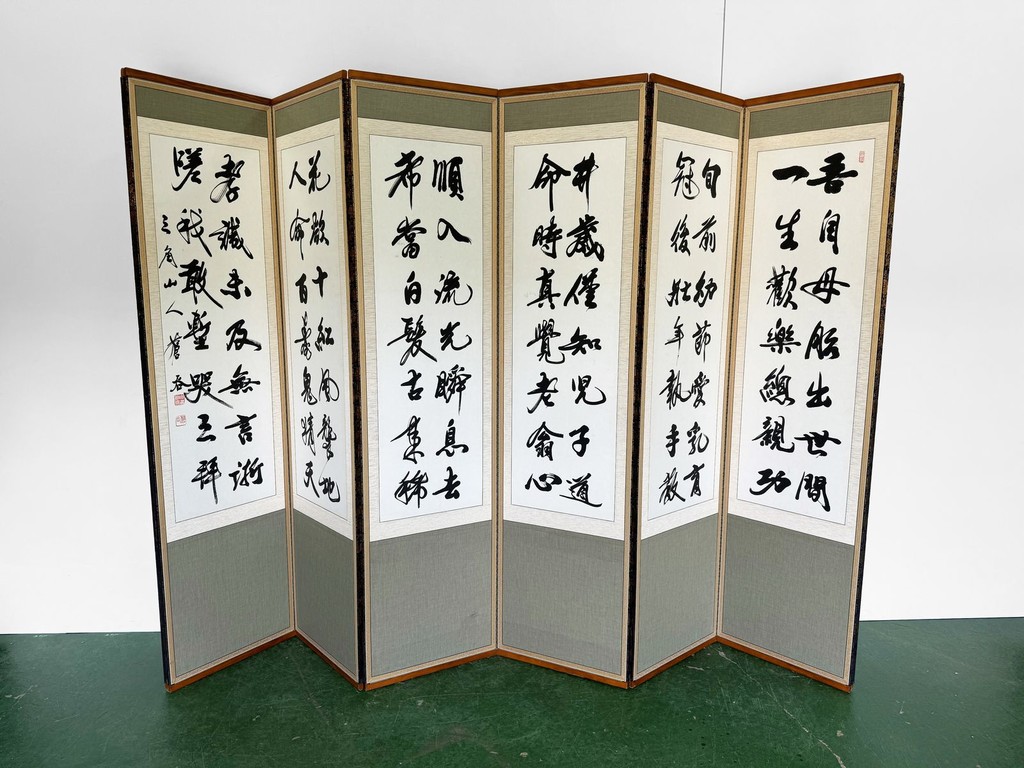 吾自母胎出世間
一生歡樂總親功
旬前幼節愛乳育
冠後壯年執手教
歲僅知兒子道
命時真覺老翁心
順入流光瞬息去
希當白髮古來稀
花十紅風地
人命百壽鬼精天
孝誠未及無言
嗟我敢哭三拜
山人